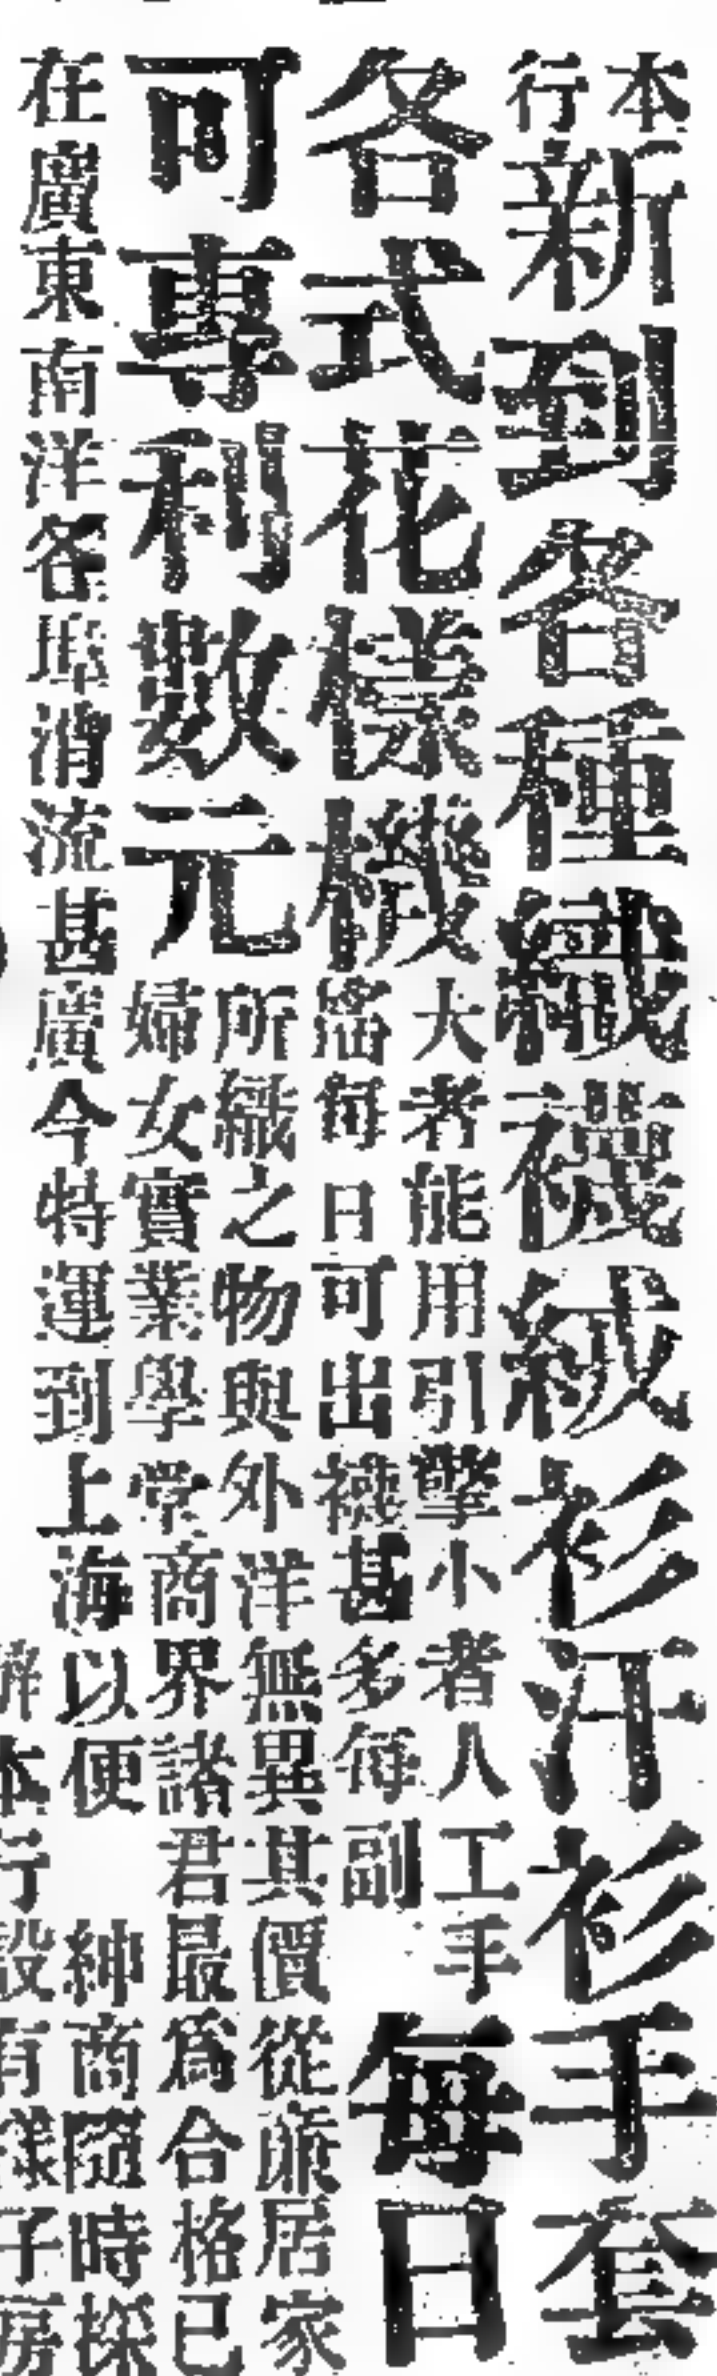 本行新到各種織襪絨衫汗衫手套
各式花樣機大者能用引擎小者人工手
搖每日可出襪甚多每副
每日
可專利數元所織之物與外洋無異其價從廉居家
婦女實業學堂商界諸君最爲合格已
在廣東南洋各埠消流甚廣今特運到上海以便
紳商隨時採
本行設有樣子房